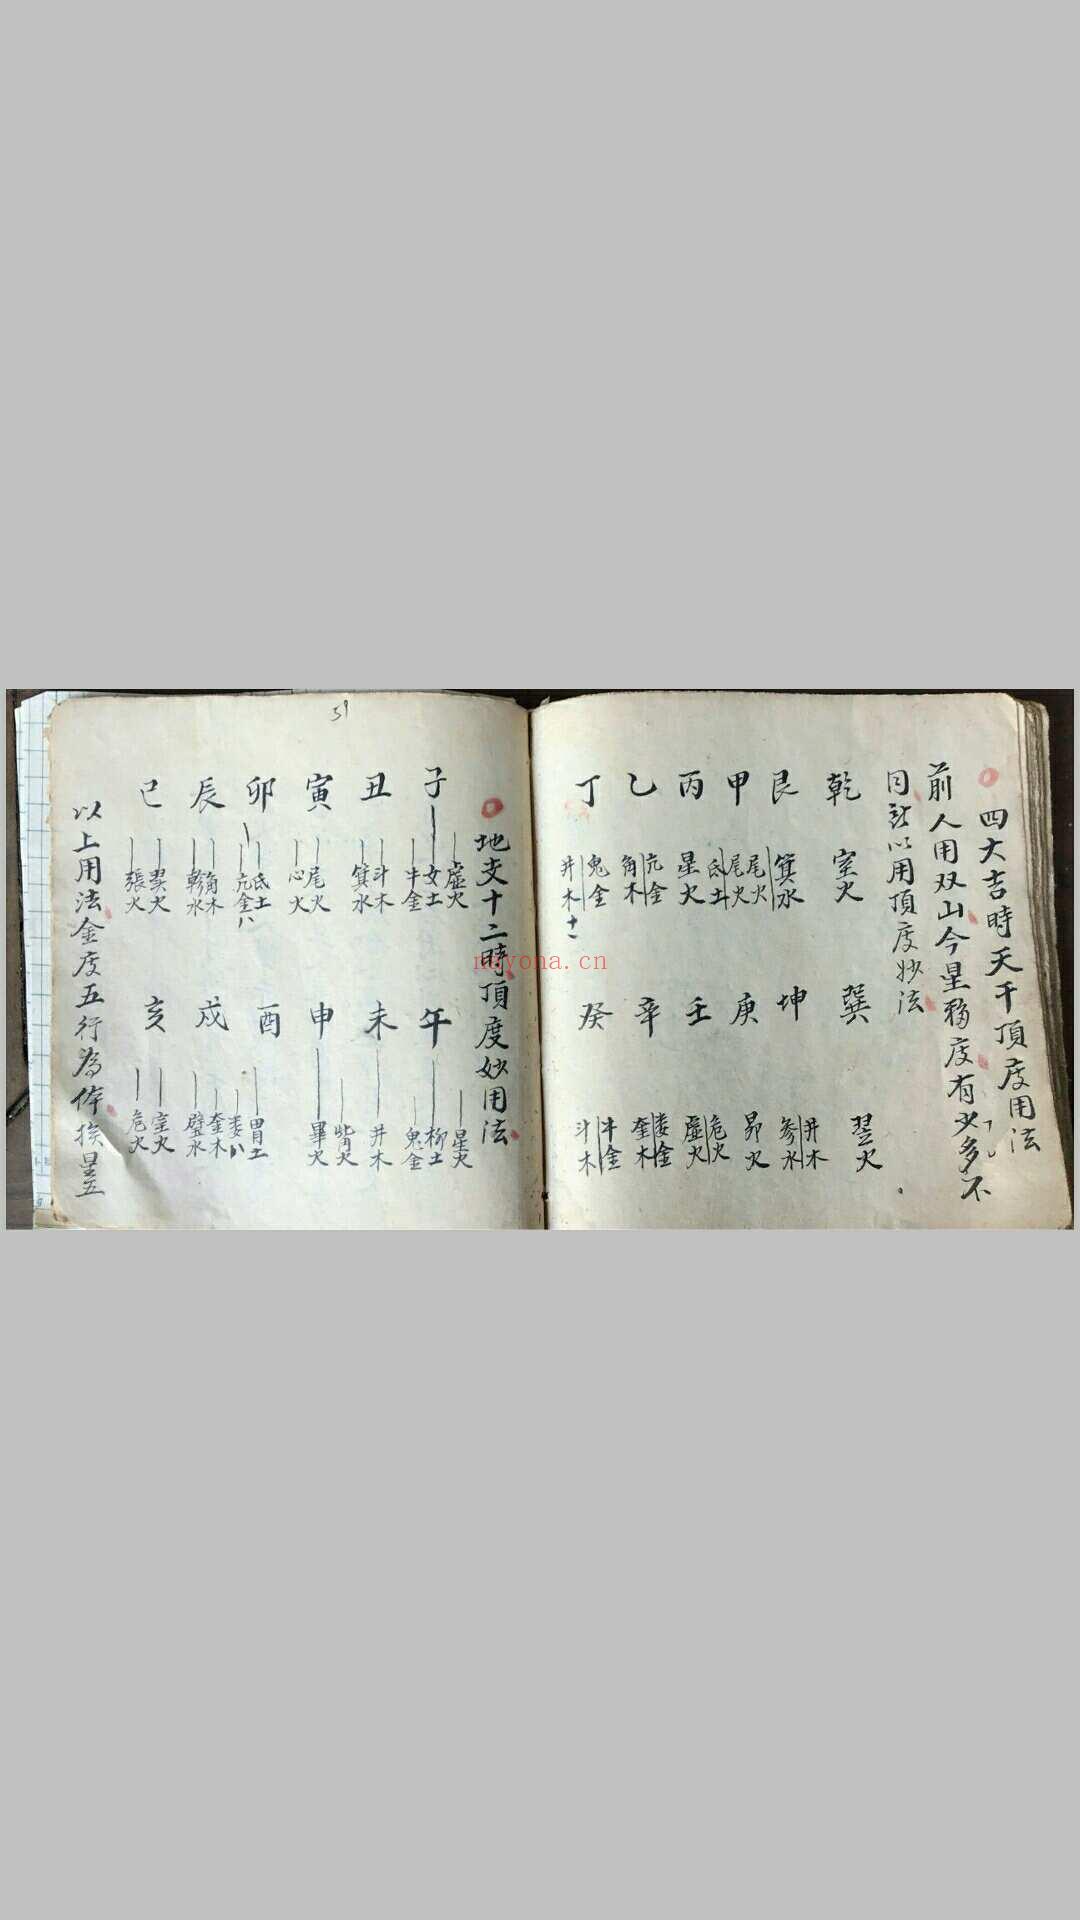 四大吉時天干頂度用法
前人用双山今星移度有少多不
同記以用頂度妙法
乾 室火 巽 翌火
艮 箕水 坤 井木 参水
甲 尾火 尾火 庚 昴火
丙 氐土 星火 壬 危火 虛火
乙 亢金 角木 辛 娄金 奎木
丁 鬼金 井木 十一 癸 牛金 斗木
地支十二時頂度妙用法
子 虛火 女土 牛金 午 星火 柳土 鬼金
丑 斗木 箕水 未 井木
寅 尾火 心火 申 觜火 畢火
卯 氐土 亢金 八 酉 胃土 娄 八
辰 角木 軫水 戍 奎木 壁水
巳 翼火 張火 亥 室火 危火
以上用法金度五行為体挨星五
51
nayona.cn